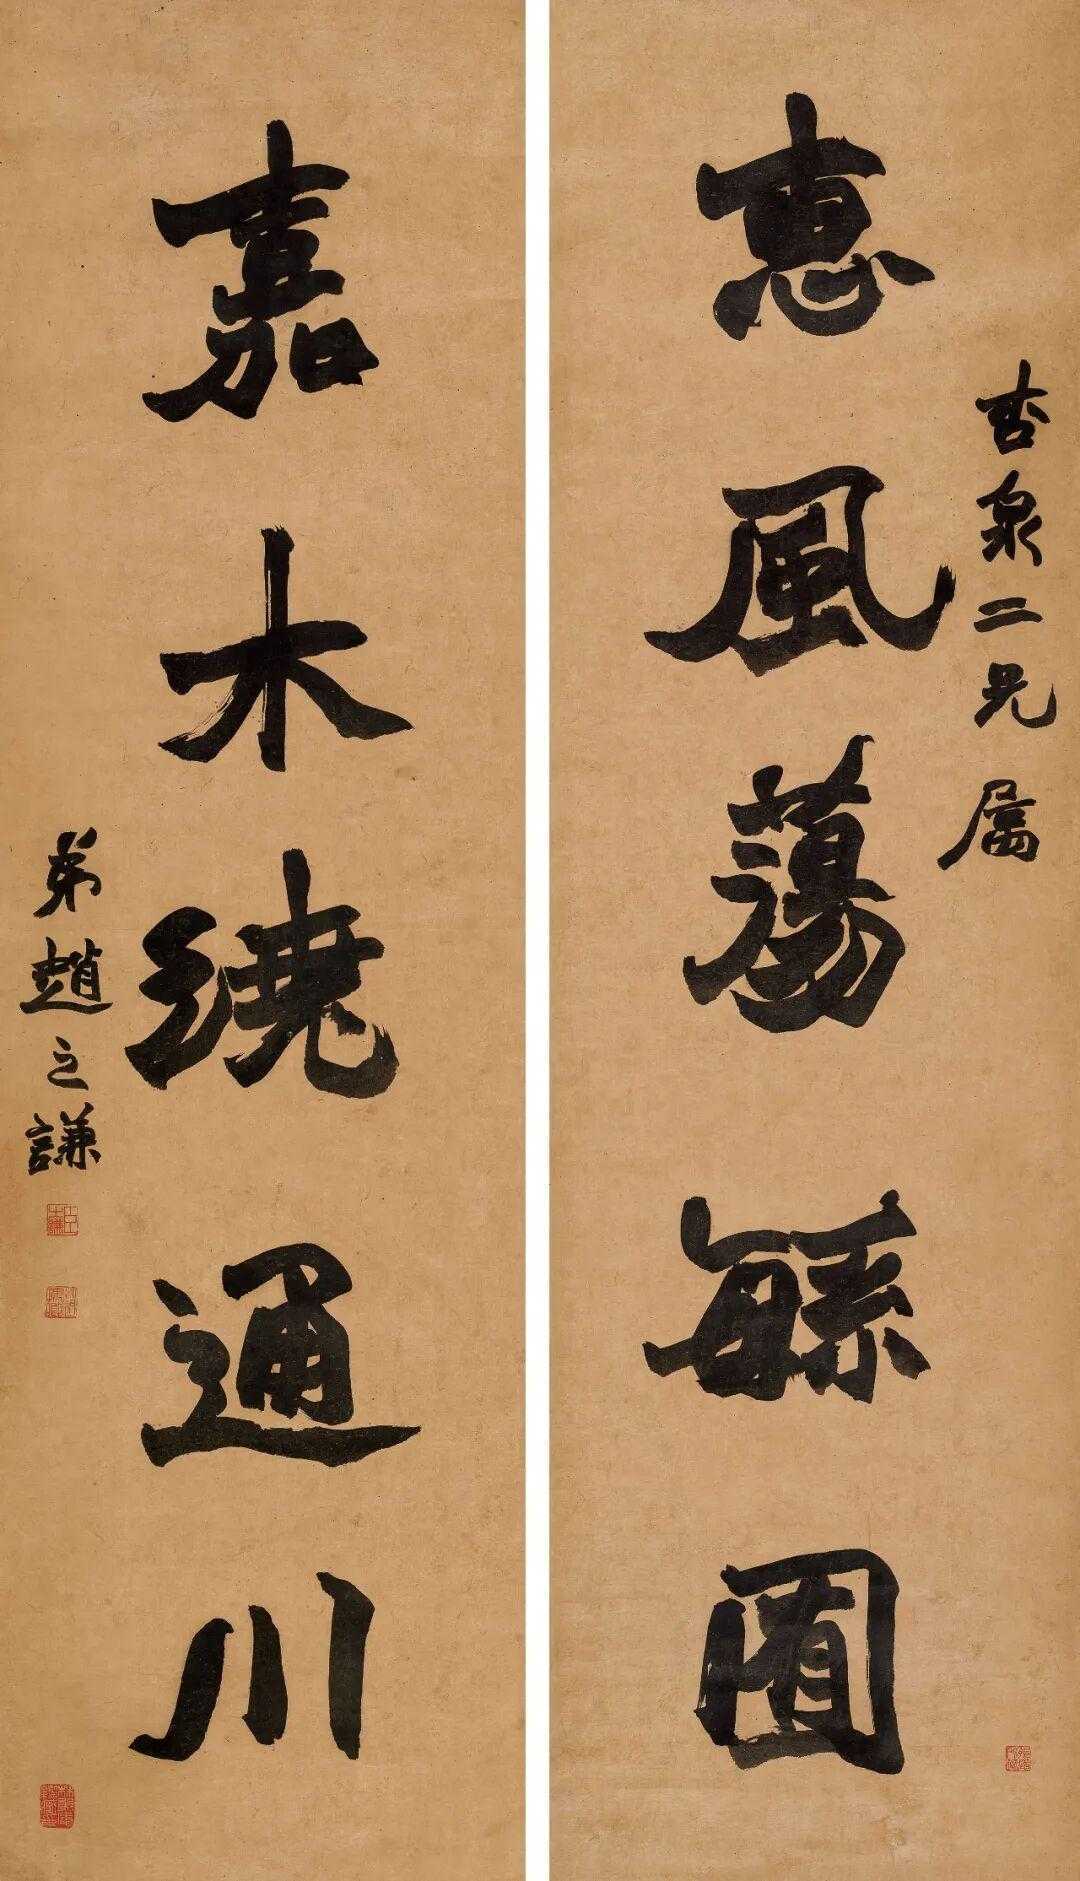 惠風蕩繇囿
杏泉二兄屬
嘉木繞通川
弟趙之謙